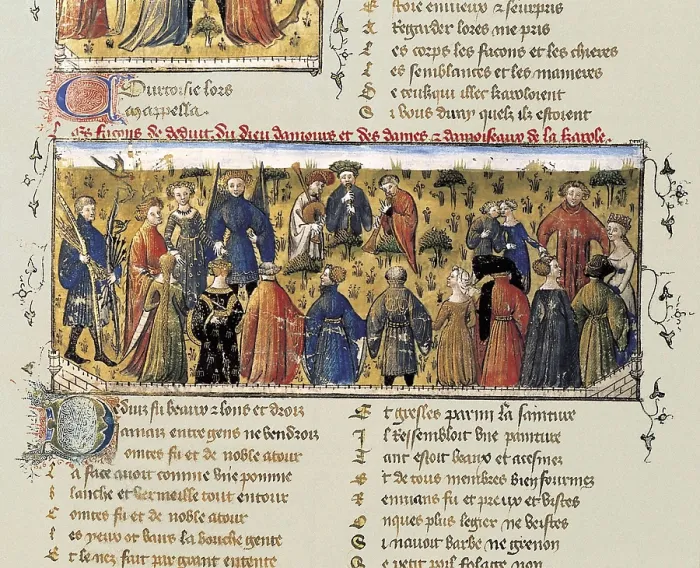 Courtoisie lors
mappella.
Estoie enuieux & seurpris
A regarder lores me pris
Les corps les facons et les chieres
Les semblances et les manieres
De ceulx qui illec karoloient
Si vous diray quelz ilz estoient
Les facons de deduit du dieu damours et des dames & damoiseaux de la karole.
Deduiz fu beaux & lons et droiz
Jamais entre gens ne vendroiz
Comtes fu et de noble atour
La face auoit comme vne pomme
Blanche et vermeille tout entour
Comtes fu et de noble atour
Les yeux ot vairs la bouche gente
Et le nez fait par grant entente
Et gresles parmi la sainture
Il ressembloit vne painture
Tant estoit beaux et acesmez
Et de tous membres bien fourmez
Remuans fu et preux et vistes
Onques plus legier ne veistes
Si nauoit barbe ne grenon
Se petit poil folage non